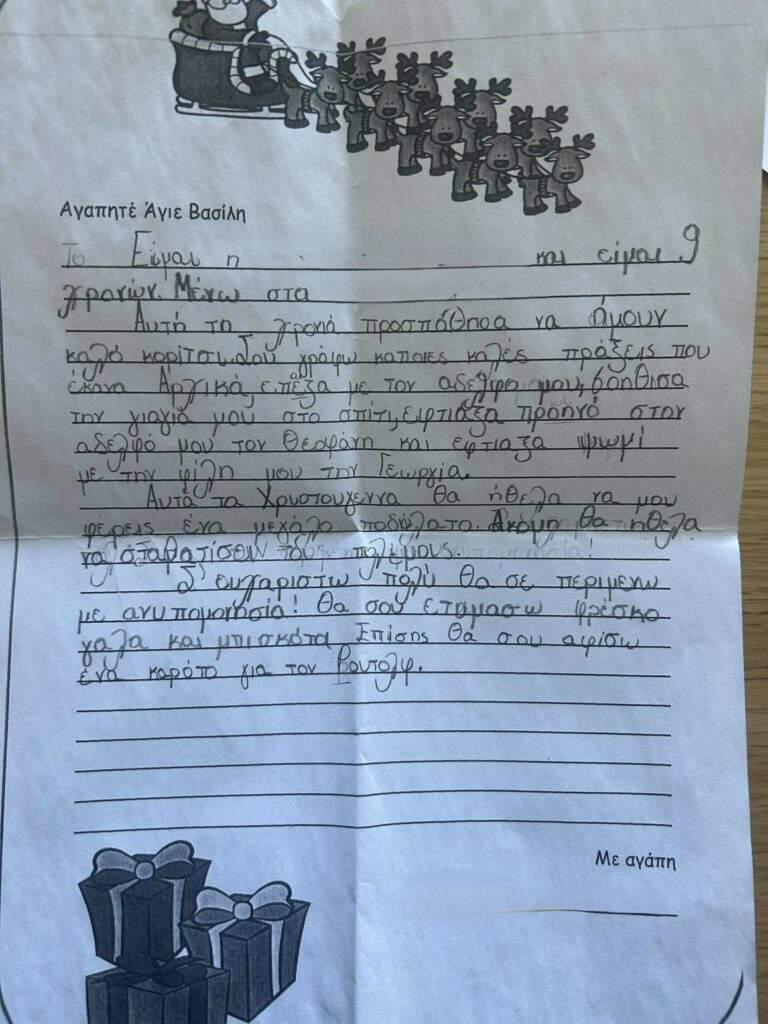 Αγαπητέ Άγιε Βασίλη
Το Είμαι η και είμαι 9
χρονών. Μένω στα
Αυτή τη χρονιά προσπάθησα να ήμουν
καλό κορίτσι. Σου γράφω κάποιες καλές πράξεις που
έκανα Αρχικά, έπεξα με τον αδελφό μου, βοήθισα
την γιαγιά μου στο σπίτι, εφτιάξα προηνό στον
αδελφό μου τον Θεοφάνη και εφτιαξα ψωμί
με την φίλη μου την Γεωργία.
Αυτά τα Χρυστουγεννα θα ήθελα να μου
φέρεις ένα μεγάλο ποδώλατο. Ακόμη θα ήθελα
να σταθατίσουν τους πολέμους. !
Σ' ευχαριστω πολύ θα σε περιμενω
με ανυπομονησία! Θα σου ετιμασω φρέσκο
γαλα και μπισκότα. Επίσης θα σου αφίσω
ένα καρότο για τον Ρουτολφ.
Με αγάπη